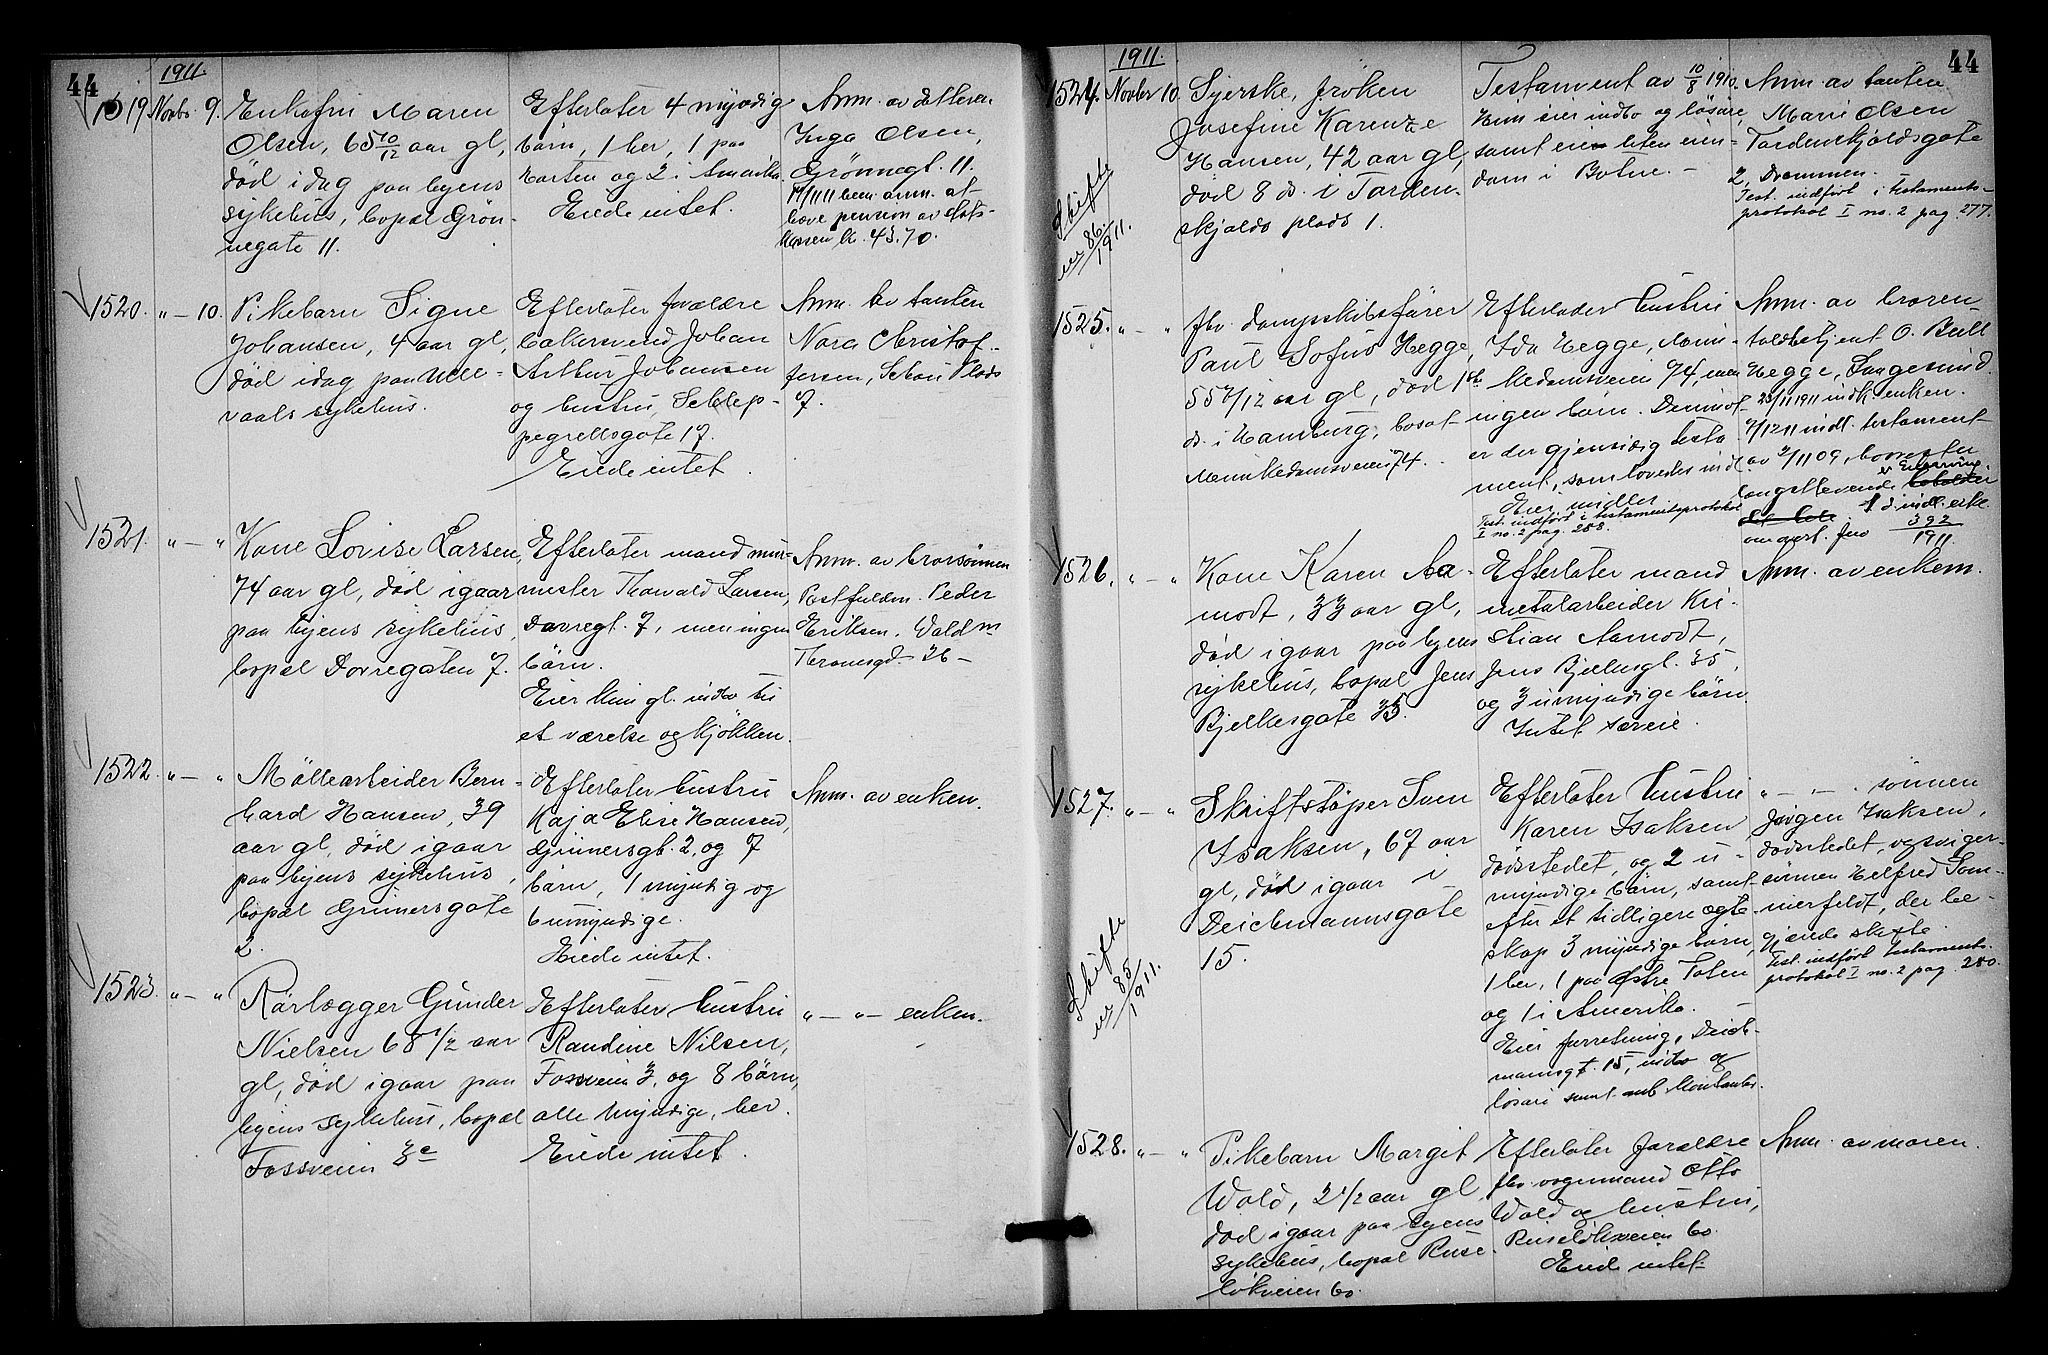 44
1911.
1519 Novbr 9.
Enkefru Maren
Olsen, 65 10/12 aar gl,
död idag paa byens
sykehus, bopæl Grön-
negate 11.
Efterlater 4 myndig
börn, 1 her, 1 paa
Horten og 2 i Amerika
Eiede intet.
Anm. av datteren
Inga Olsen,
Grönnegt. 11.
at
have pension av stats-
kassen kr. 43.70.
1520. " — 10.
Pikebarn Signe
Johansen, 4 aar gl,
död idag paa Ulle-
vaals sykehus.
Efterlater forældre
bakersvend Johan
Arthur Johansen
og hustru, Schlep-
pegrellsgate 17.
Eiede intet.
Anm. av tanten
Nora Christof-
fersen, Schous Plads
7.
1521. " — "
Kone Lovise Larsen,
74 aar gl, död igaar
paa byens sykehus,
bopæl Dovregaten 7.
Efterlater mand mur-
mester Thorvald Larsen,
Dovregt. 7, men ingen
börn.
Eier kun gl. indbo til
et værelse og kjökken.
Anm. av brorsönnen
Postfuldm. Peder
Eriksen, Waldm
Thranesgd. 36 —
1522. " — "
Möllearbeider Bern-
hard Hansen, 39
aar gl, död igaar
paa byens sykehus,
bopæl Grünersgate
2.
Efterlater hustru
Kaja Elise Hansen,
Grünersgt. 2, og 7
börn, 1 myndig og
6 umyndige.
Eiede intet.
Anm. av enken.
1523. " — "
Rörlægger Gunder
Nielsen 68 1/2 aar
gl, död igaar paa
byens sykehus, bopæl
Fossveien 3c
Efterlater hustru
Randine Nilsen,
Fossveien 3, og 8 börn,
alle myndige, her.
Eiede intet.
" — " — enken.
44
1911.
1524. Novbr 10.
Skifte
nr 86/1911.
Syerske, fröken
Josefine Karenze
Hansen, 42 aar gl,
död 8 ds. i Torden-
skjolds plads 1.
Testament av 10/8 1910.
Hun eier indbo og lösöre,
samt en liten eien-
dom i Botne. —
Anm. av tanten
Marie Olsen
Tordenskjoldsgate
2, Drammen. —
Test. indfört i testaments-
protokol I no. 2 pag. 277.
1525. " — "
fhv. dampskibsförer
Paul Sofus Hegge,
55 aar gl, död 1ste
ds. i Hamburg, bosat
Munkedamsveien 74.
Efterlader hustru
Ida Hegge, Mun-
kedamsveien 74, men
ingen börn. Derimot
er der gjensidig testa-
ment, som lovedes ind
Eier midler.
Test. indfört i testamentsprotokol
I no. 2 pag. 288.
Anm. av broren
toldbetjent O. Bull
Hegge, Langesund.
23/11 1911 indk. enken.
9/12 11 indl. testament
av 2/11 09,
længstlevende er Enearving.
beholder
392
1911.
1526. " — "
Kone Karen Aa-
modt, 33 aar gl,
död igaar paa byens
sykehus, bopæl Jens
Bjelkesgate 35.
Efterlater mand
metalarbeider Kri-
stian Aamodt,
Jens Bjelkesgt. 35,
og 3 umyndige börn.
Intet særeie.
Anm. av enkem.
1527. " — "
Skifte
nr 85/1911.
Skriftstöper Sven
Isaksen, 67 aar
gl, död igaar i
Deichmannsgate
15.
Efterlater hustru
Karen Isaksen
dödsstedet, og 2 u-
myndige börn, samt
efter et tidligere ægte-
skap 3 myndige börn,
1 her, 1 paa Östre Toten
og 1 i Amerika.
Eier forretning, Deich-
mannsgt. 15, indbo og
lösöre samt
" — " — . sönnen
Jörgen Isaksen,
dödsstedet, og sviger-
sönnen Helfred Som-
merfeldt, der be-
gjærde skifte.
Test. indfört testaments-
protokol I no. 2 pag. 280.
1528. " — "
Pikebarn Margit
Wold, 2 1/2 aar gl,
död igaar paa byens
sykehus, bopæl Ruse-
lökveien 60.
Efterlater forældre
fhv. vognmand Otto
Wold og hustru,
Ruselökveien 60.
Eiede intet.
Anm. av moren.